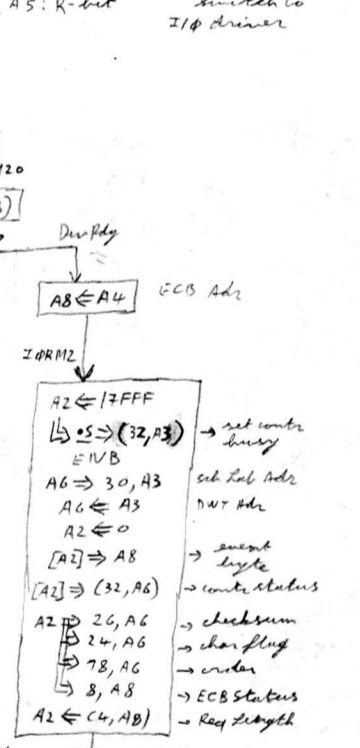 A5: K-bit switch to
I/Φ driver
120
DevRdy
A8 ⇐ A4 ECB Adr
IΦRM2
A2 ⇐ /7FFF
•S ⇒ (32, A3) → set contr
busy
A6 ⇒ 30, A3 Adr
A6 ⇐ A3 DWT Adr
A2 ⇐ 0
[A2] ⇒ A8 → event
byte
[A2] ⇒ (32, A6) → contr status
A2 ⇒ 26, A6 → checksum
⇒ 24, A6 → char flag
⇒ 78, A6 → order
⇒ 8, A8 → ECB Status
A2 ⇐ (4, A8) → Req Length